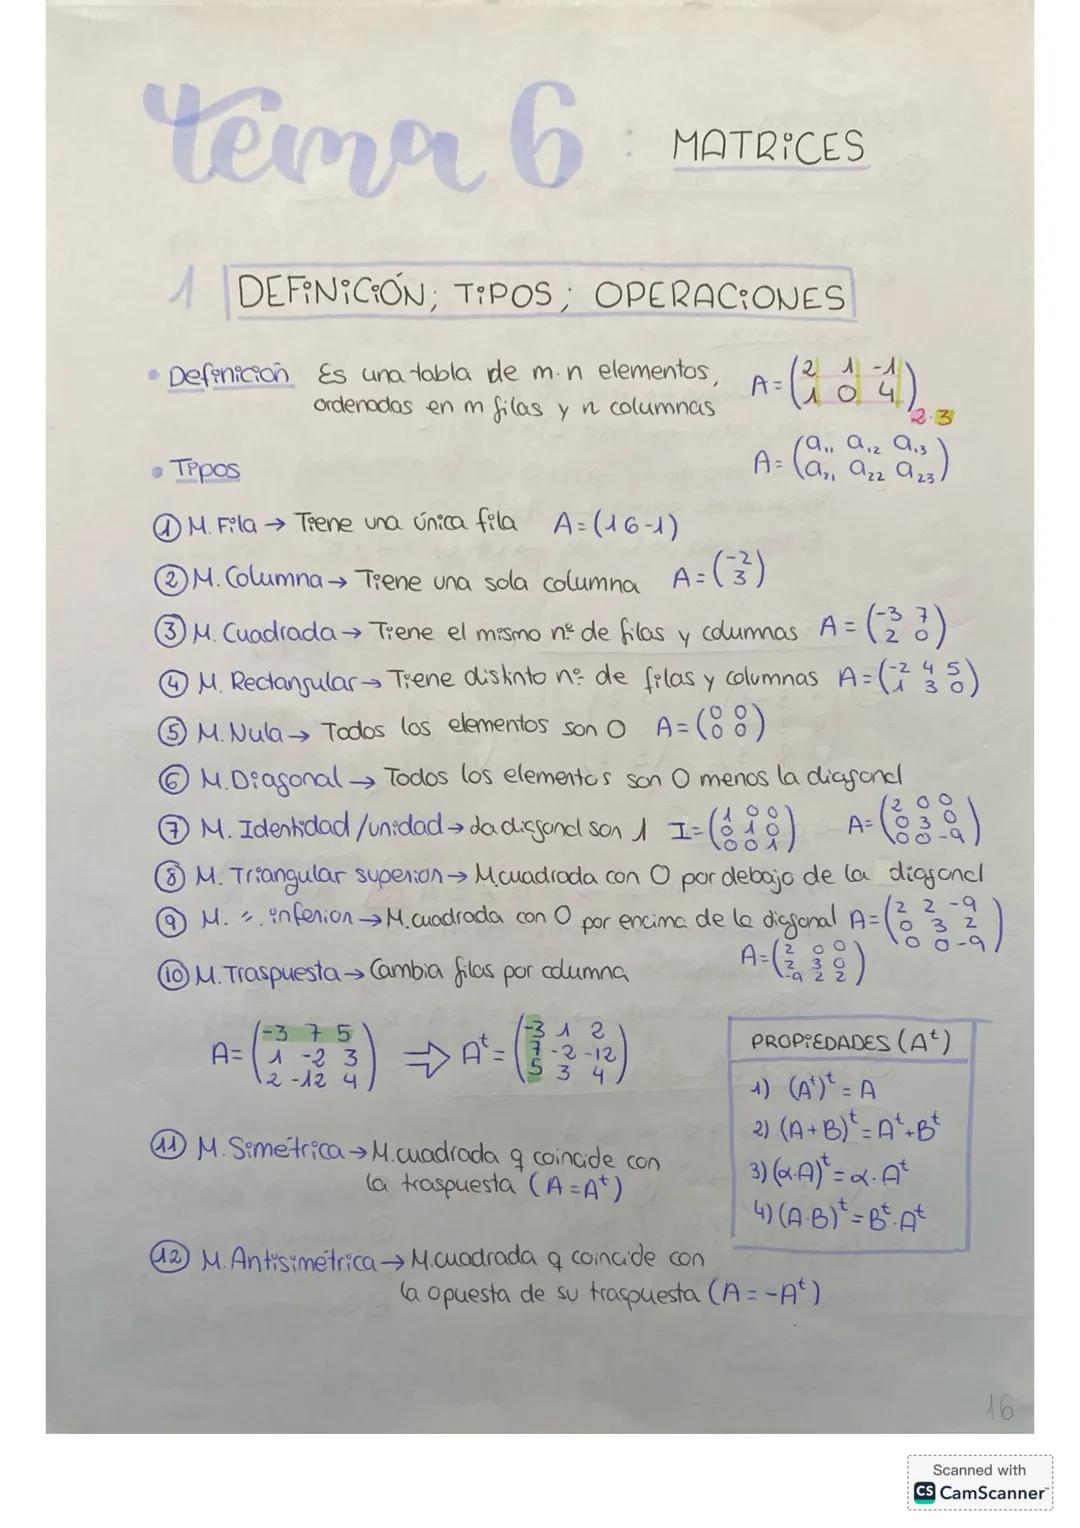 tema 6 : MATRICES
1 DEFINICIÓN; TIPOS; OPERACIONES
• Definición Es una tabla de m·n elementos, A = (2 1 -1
ordenados en m filas y n columnas 1 0 4) 2·3
• Tipos A = (a₁₁ a₁₂ a₁₃
a₂₁ a₂₂ a₂₃)
① M. Fila → Tiene una única fila A = (1 6 -1)
② M. Columna → Tiene una sola columna A = (-2
3)
③ M. Cuadrada → Tiene el mismo nº de filas y columnas A = (-3 7
2 0)
④ M. Rectangular → Tiene distinto nº de filas y columnas A = (-2 4 5
1 3 0)
⑤ M. Nula → Todos los elementos son 0 A = (0 0
0 0)
⑥ M. Diagonal → Todos los elementos son 0 menos la diagonal
⑦ M. Identidad/unidad → La diagonal son 1 I = (1 0 0
0 1 0
0 0 1) A = (2 0 0
0 3 0
0 0 -9)
⑧ M. Triangular superior → M. cuadrada con 0 por debajo de la diagonal
⑨ M. " inferior → M. cuadrada con 0 por encima de la diagonal A = (2 2 -9
0 3 2
0 0 -9)
A = (2 0 0
2 3 0
-9 2 2)
⑩ M. Traspuesta → Cambia filas por columna
A = (-3 7 5
1 -2 3
2 -12 4) ⇒ Aᵗ = (-3 1 2
7 -2 -12
5 3 4)
PROPIEDADES (Aᵗ)
1) (Aᵗ)ᵗ = A
2) (A+B)ᵗ = Aᵗ+Bᵗ
3) (α·A)ᵗ = α·Aᵗ
4) (A·B)ᵗ = Bᵗ·Aᵗ
⑪ M. Simétrica → M. cuadrada q coincide con
la traspuesta (A = Aᵗ)
⑫ M. Antisimétrica → M. cuadrada q coincide con
la opuesta de su traspuesta (A = -Aᵗ)
16
Scanned with
CS CamScanner